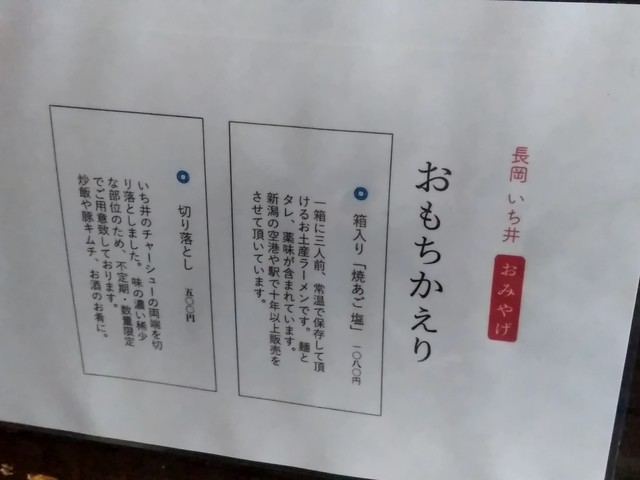 長岡 いち井 おみやげ
おもちかえり
箱入り「焼あご塩」 一〇八〇円
一箱に三人前、常温で保存して頂
けるお土産ラーメンです。麺と
タレ、薬味が含まれています。
新潟の空港や駅で十年以上販売を
させて頂いています。
切り落とし 五〇〇円
いち井のチャーシューの両端を切
り落としました。味の濃い稀少
な部位のため、不定期・数量限定
でご用意致しております。
炒飯や豚キムチ、お酒のお肴に。